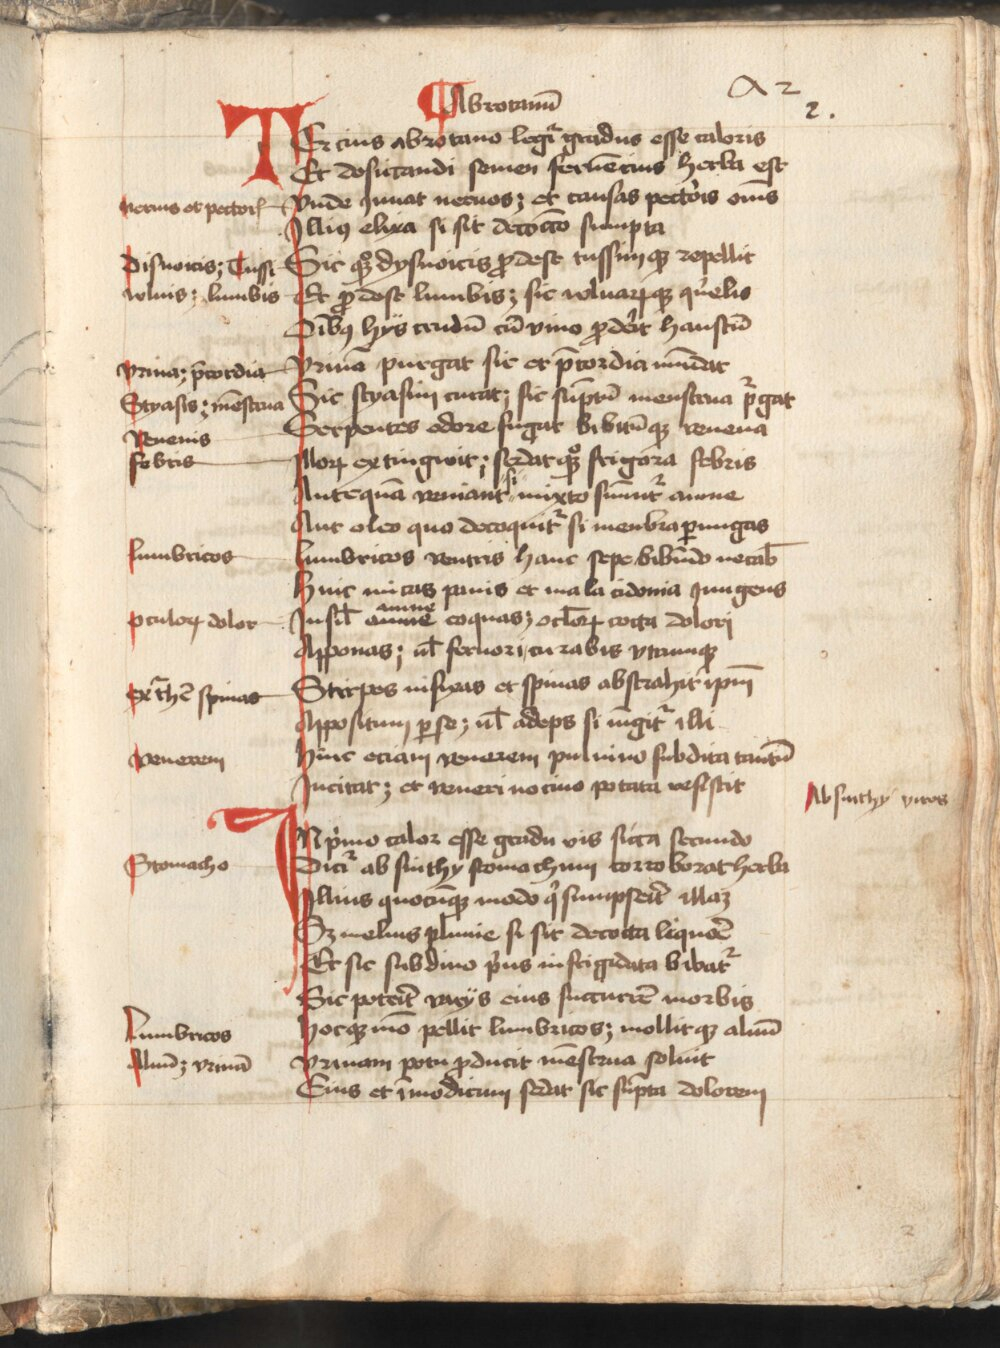 a 2
2.
¶ Abrotanū
TErcius abrotano legiꝰ gradus esse caloris
Et desiccandi semen feruēcius herba est
nervis et pectori
Vnde iuuat neruos; et causas pectoris om̄s
Illius elixa si sit decoctio sumpta
Disnoicis; Tussi
Sic qꝫ dysnoicis ꝓdest tussimqꝫ repellit
vuluis; lumbis
Et ꝓdest lumbis; sic vuluarqꝫ querelis
Om̄ibꝰ hijs crudū cū vino ꝓderit haustū
Vrina; p̄cordia
Vrinā purgat sic et p̄cordia mūdat
Styasis; mēstrua
Sic styasim curat; sic sūptū menstrua purgat
Venenis
Serpentes odore fugat bibitūqꝫ venena
febris
Illorꝝ extinguit; sedatqꝫ frigora febris
Antequā veniant si mixto sumitur amne
Aut oleo quo decoquitur si menbra perungas
Lumbricos
Lumbricos ventris hanc sepe bibendo necabis
Huic micas panis et mala cidonia iungens
oculorꝝ dolor
In simul amne amne coquas; oculorꝝ cocta dolori
Apponas; uel feruori curabis vtrumqꝫ
spinas
Stirpes infixas et spinas abstrahit ipm̄
Appositum per se; uel adeps si iungitur illi
venerem
Hinc eciam venerem puluino subdita tantū
Incitat; et veneri nocuo potata resistit
Absinthij vires
IN primo calor esse gradu vis sicca secundo
Stomacho
Dicitur absinthij stomachum corroborat herba
Illius quocūqꝫ modo quis sumpserit illaꝫ
Sꝫ melius pluuie si sit decocta liquore
Et sic sub diuo prius infrigidata bibatur
Sic poterit varijs eius succurrere morbis
Lumbricos
Hocqꝫ mō pellit lumbricos; mollitqꝫ aluū
Aluū; vrinā
Vrinam potu ꝓducit mēstrua soluit
Eius et īmodicum sedat sic sūpta dolorem
2